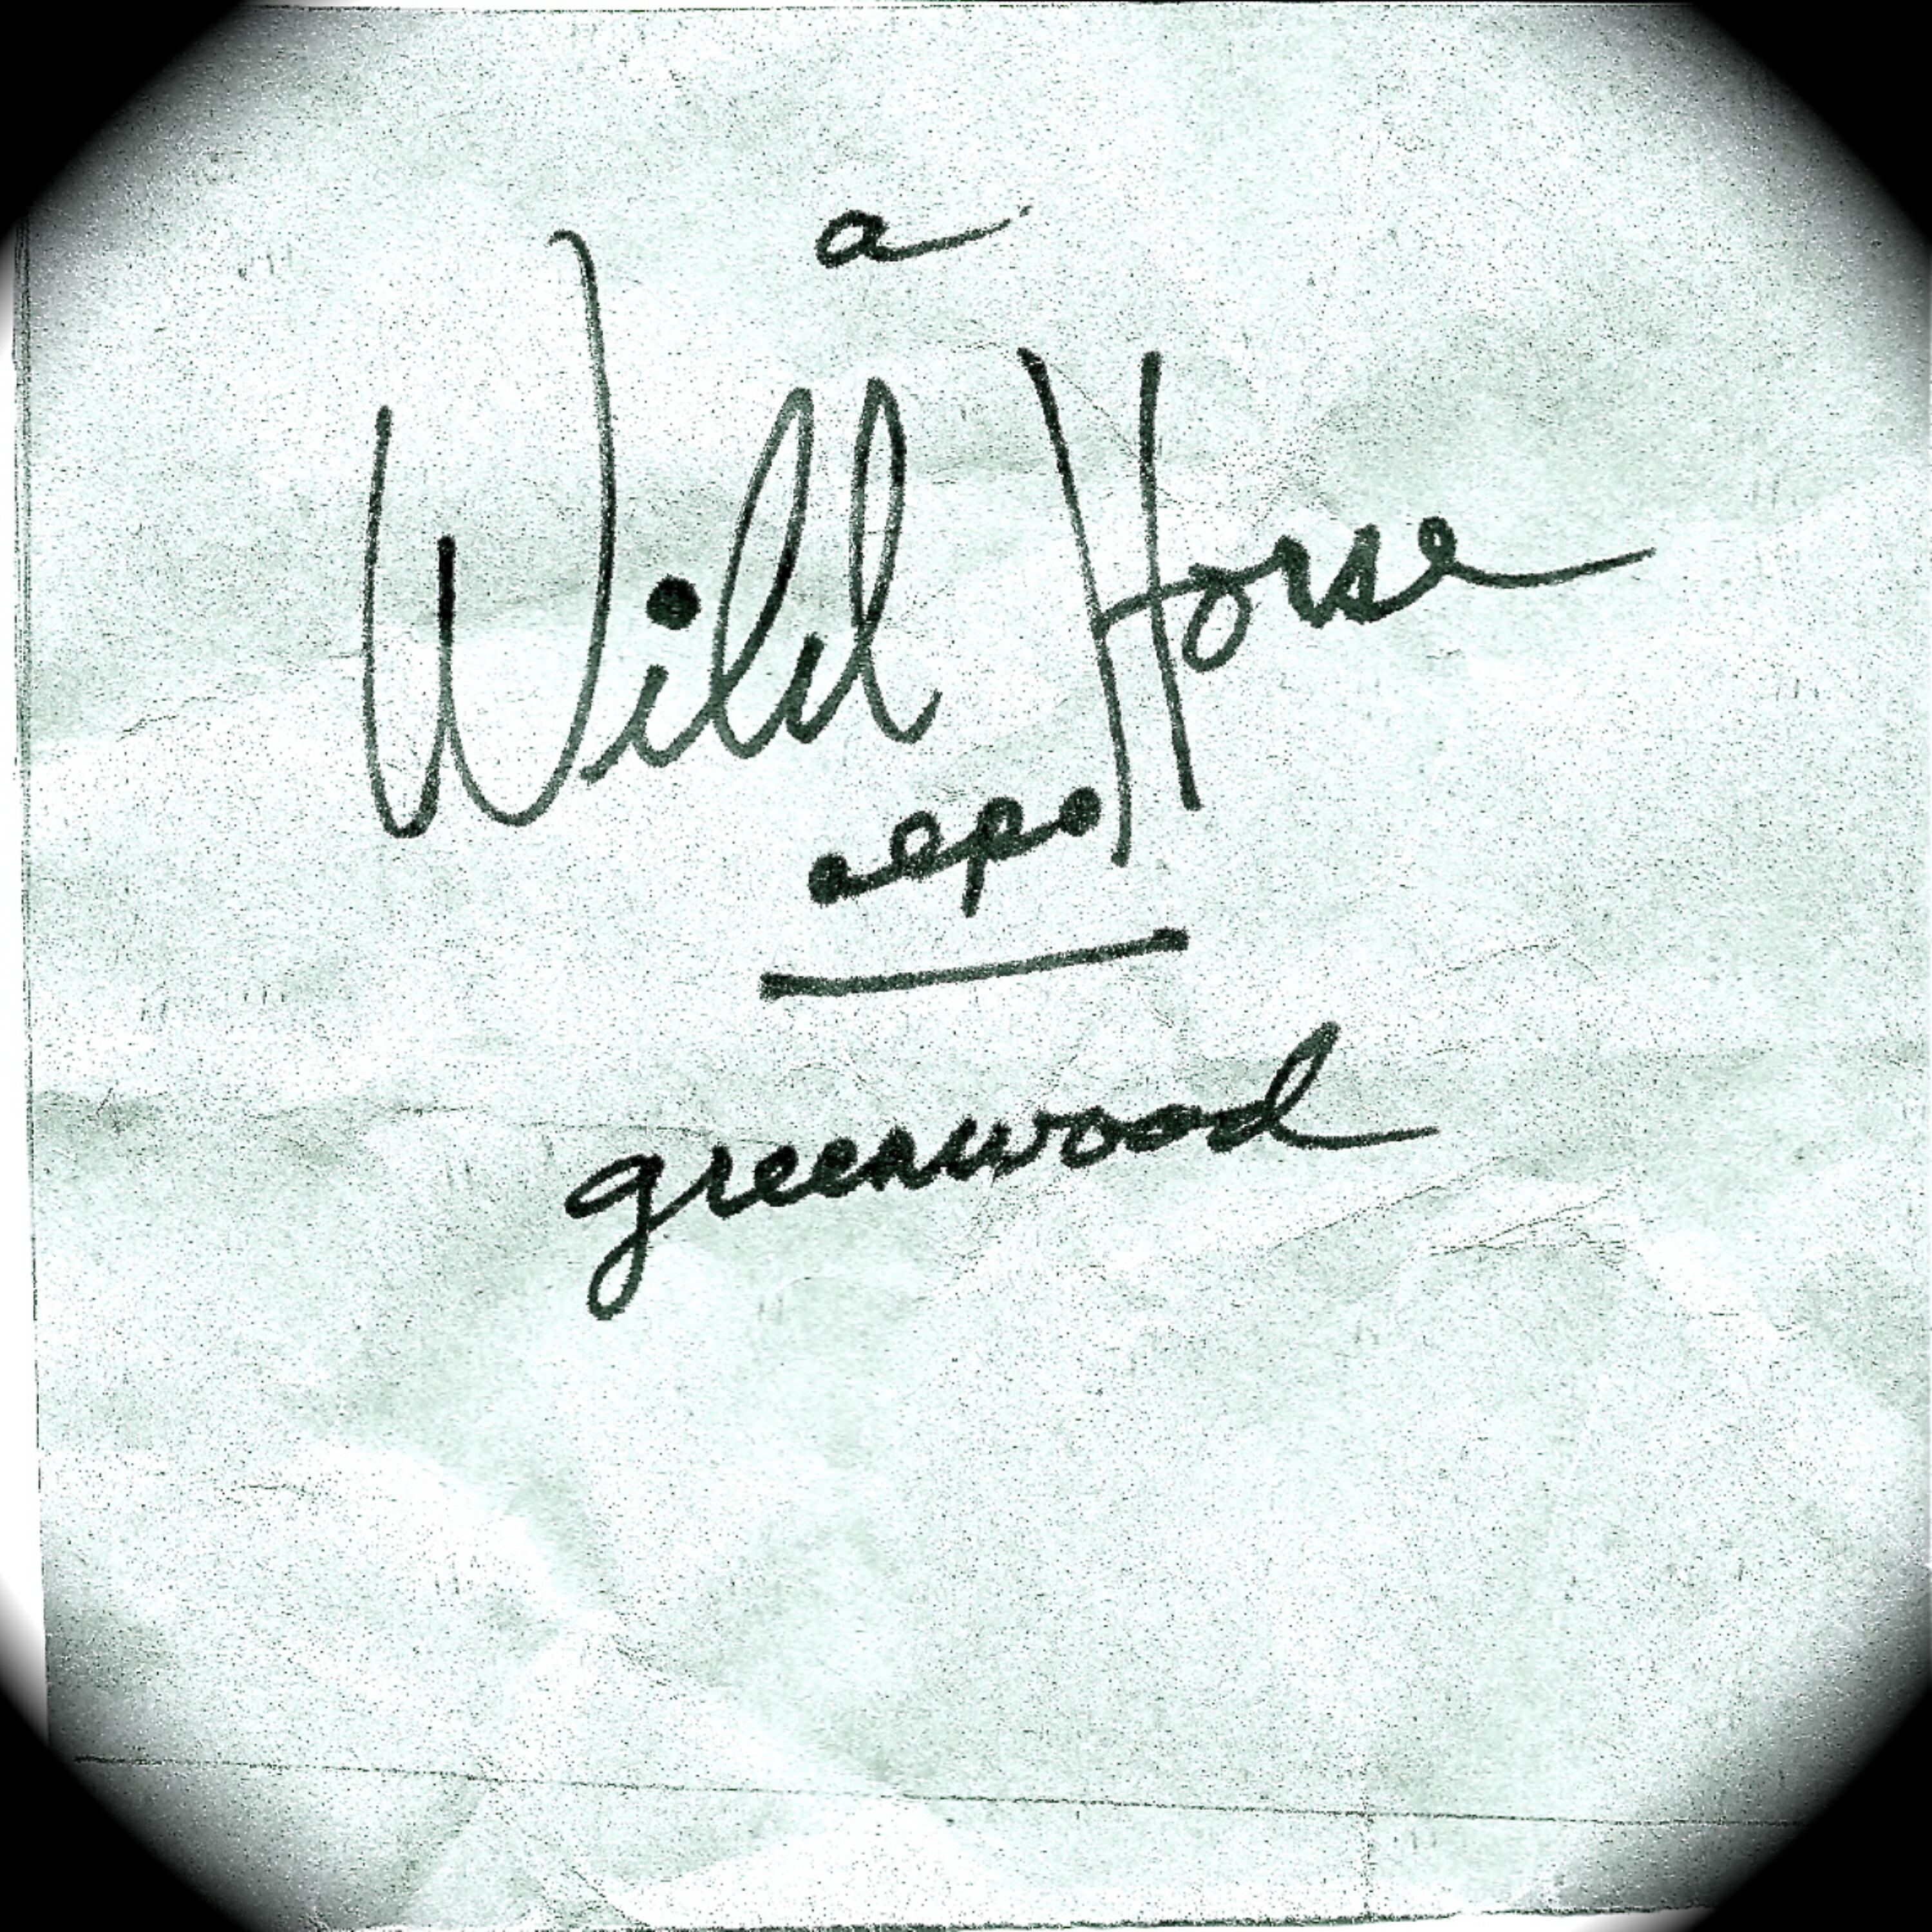 a
Wild Horse
greenwood